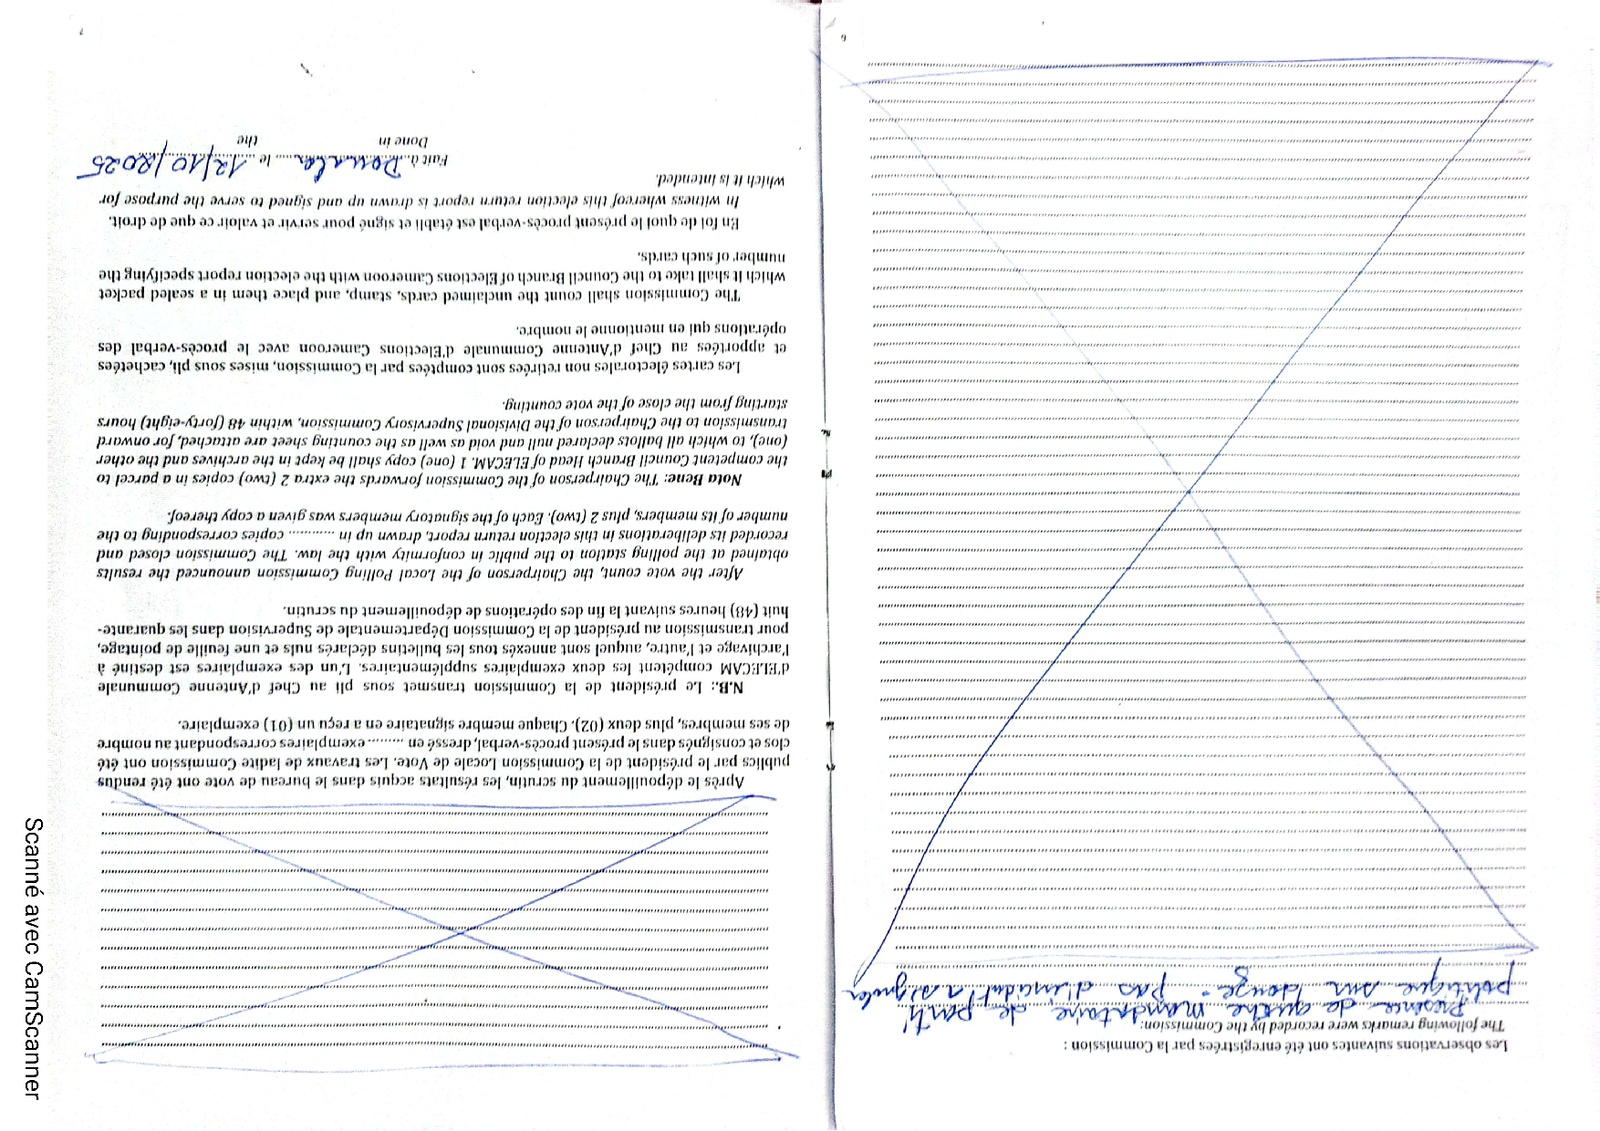 6
Les observations suivantes ont été enregistrées par la Commission :
The following remarks were recorded by the Commission:
Présence de quatre mandataire de parti
politique sur douze. Pas d'incident à signaler
7
Après le dépouillement du scrutin, les résultats acquis dans le bureau de vote ont été rendus
publics par le président de la Commission Locale de Vote. Les travaux de ladite Commission ont été
clos et consignés dans le présent procès-verbal, dressé en ......... exemplaires correspondant au nombre
de ses membres, plus deux (02). Chaque membre signataire en a reçu un (01) exemplaire.
N.B.: Le président de la Commission transmet sous pli au Chef d'Antenne Communale
d'ELECAM compétent les deux exemplaires supplémentaires. L'un des exemplaires est destiné à
l'archivage et l'autre, auquel sont annexés tous les bulletins déclarés nuls et une feuille de pointage,
pour transmission au président de la Commission Départementale de Supervision dans les quarante-
huit (48) heures suivant la fin des opérations de dépouillement du scrutin.
After the vote count, the Chairperson of the Local Polling Commission announced the results
obtained at the polling station to the public in conformity with the law. The Commission closed and
recorded its deliberations in this election return report, drawn up in ........... copies corresponding to the
number of its members, plus 2 (two). Each of the signatory members was given a copy thereof.
Nota Bene: The Chairperson of the Commission forwards the extra 2 (two) copies in a parcel to
the competent Council Branch Head of ELECAM. 1 (one) copy shall be kept in the archives and the other
(one), to which all ballots declared null and void as well as the counting sheet are attached, for onward
transmission to the Chairperson of the Divisional Supervisory Commission, within 48 (forty-eight) hours
starting from the close of the vote counting.
Les cartes électorales non retirées sont comptées par la Commission, mises sous pli, cachetées
et apportées au Chef d'Antenne Communale d'Elections Cameroon avec le procès-verbal des
opérations qui en mentionne le nombre.
The Commission shall count the unclaimed cards, stamp, and place them in a sealed packet
which it shall take to the Council Branch of Elections Cameroon with the election report specifying the
number of such cards.
En foi de quoi le présent procès-verbal est établi et signé pour servir et valoir ce que de droit.
In witness whereof this election return report is drawn up and signed to serve the purpose for
which it is intended.
Fait à Douala le 12/10/2025
Done in the
Scanné avec CamScanner